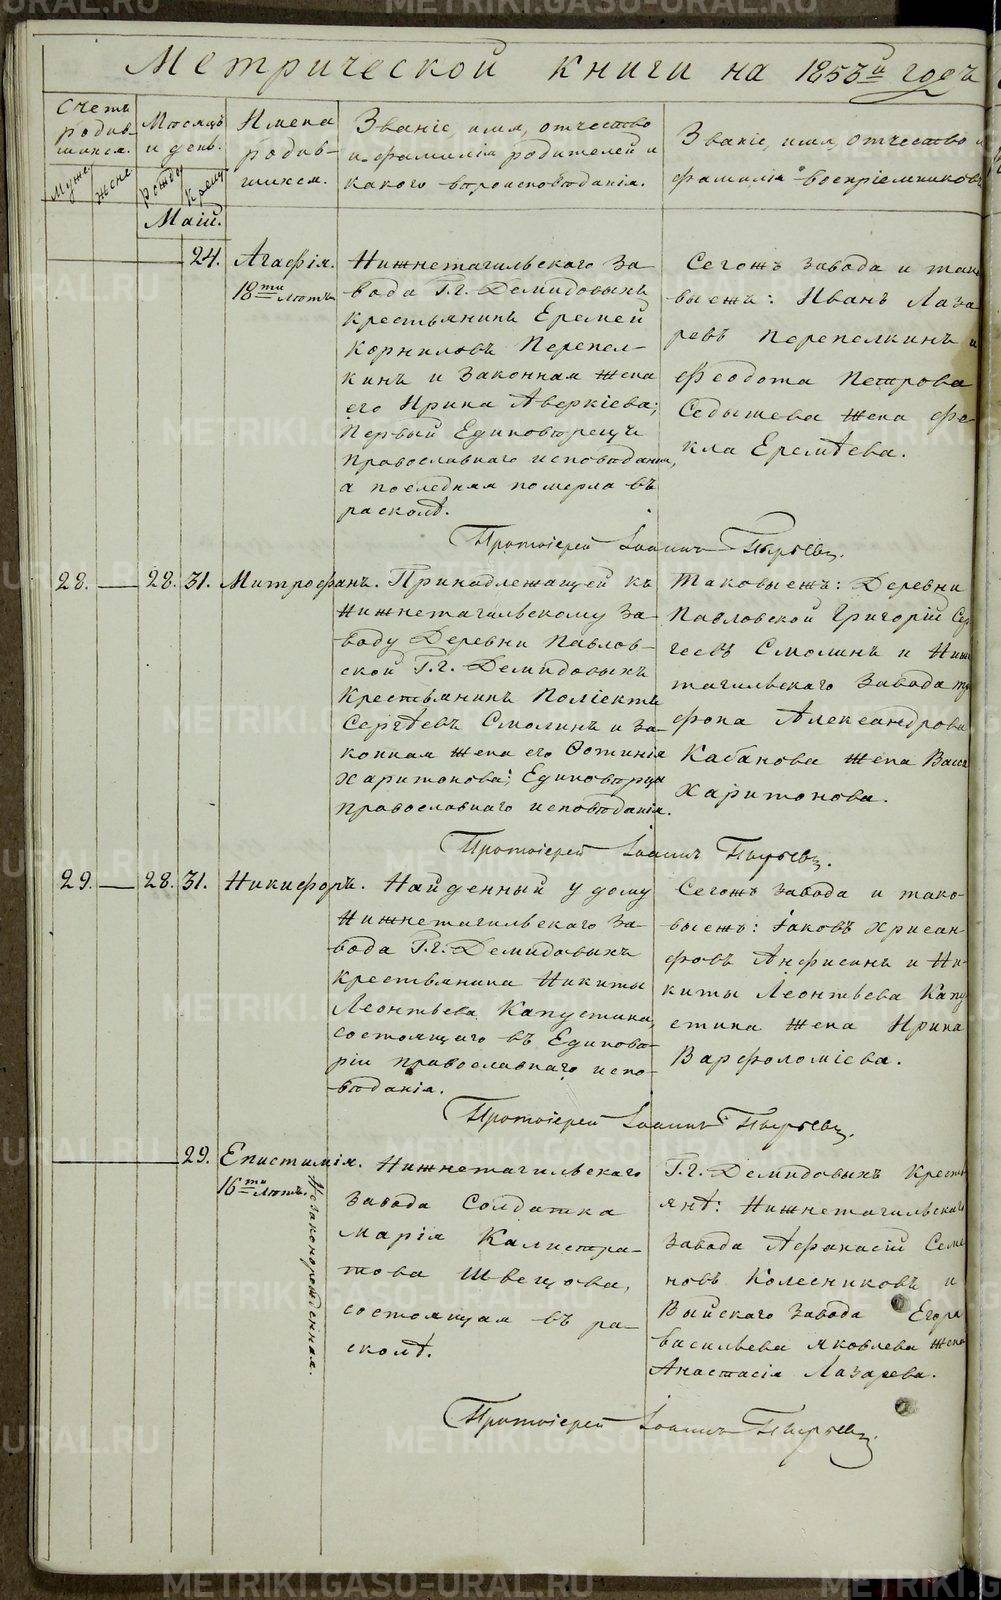 Метрической книги на 1853й годъ
Счетъ родив-
шихся.
Муже
Жене
Месяцъ
и день.
Рожде
Креще
Имена
родив-
шихся.
Званіе, имя, отчество
и фамилія родителей и
какого вѣроисповѣданія.
Званіе, имя, отчество и
фамилія воспріемниковъ
Маій.
24. Агафія.
18ти лѣтъ
Нижнетагильскаго за-
вода Г.г. Демидовыхъ
крестьянинъ Еремей
Корниловъ Перепел-
кинъ и законная жена
его Ирина Аверкіева;
Первый Единоверецъ
православнаго исповѣданія,
а последняя померла въ
расколѣ.
Сегожъ завода и тако
выежъ: Иванъ Лаза
ревъ Перепелкинъ и
Феодота Петрова
Седышева жена Фе-
кла Еремѣева.
Протоіерей Іоаннъ Пырьевъ.
28. — 28. 31. Митрофанъ.
Принадлежащей къ
Нижнетагильскому за-
воду Деревни Павлов-
ской Г.г. Демидовыхъ
крестьянинъ Поліектъ
Сергѣевъ Смолинъ и за-
конная жена его Фотинія
Харитонова; Единоверцы
православнаго исповѣданія.
Таковыежъ: Деревни
Павловской Григорій Сер
геевъ Смолинъ и Ниж
тагильскаго завода Три
фона Александрова
Кабанова жена Васса
Харитонова.
Протоіерей Іоаннъ Пырьевъ.
29. — 28. 31. Никифоръ.
Найденный у дому
Нижнетагильскаго за-
вода Г.г. Демидовыхъ
крестьянина Никиты
Леонтьева Капустина,
состоящаго въ Единове-
ріи православнаго испо-
вѣданія.
Сегожъ завода и тако-
выежъ: Іаковъ Хрисан-
фовъ Анфисинъ и Ни-
киты Леонтьева Капу
стина жена Ирина
Варфоломіева.
Протоіерей Іоаннъ Пырьевъ.
29. Епистимія.
16ти лѣтъ.
Незаконорожденная.
Нижнетагильскаго
завода Солдатка
Марія Калистра-
това Швецова,
состоящая въ ра-
сколѣ.
Г.г. Демидовыхъ Кресть
янѣ: Нижнетагильскаго
завода Афанасій Семе
новъ Колесниковъ и
Выйскаго завода Егора
Васильева Яковлева жена
Анастасія Лазарева.
Протоіерей Іоаннъ Пырьевъ.
METRIKI.GASO-URAL.RU